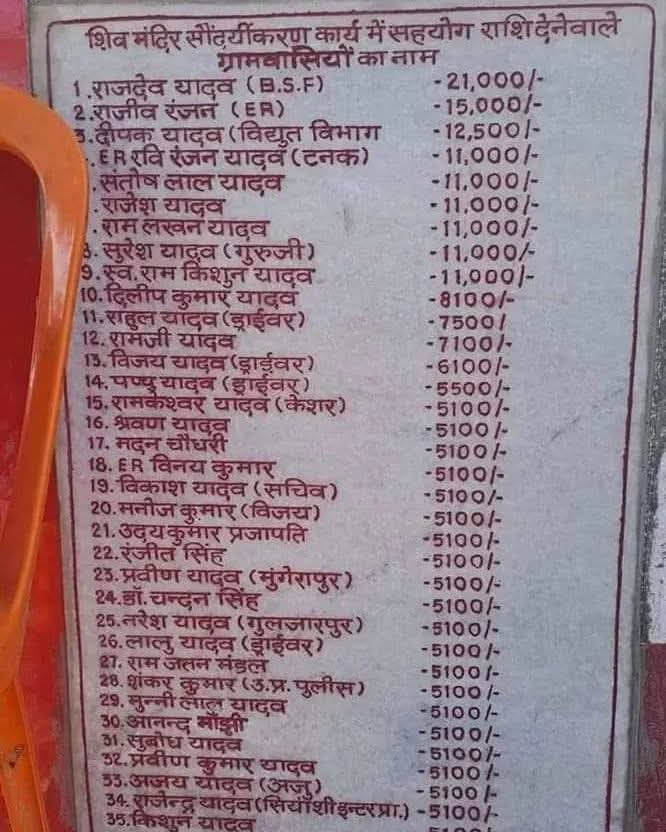 शिव मंदिर सौंदर्यीकरण कार्य में सहयोग राशि देने वाले
ग्रामवासियों का नाम
1. राजदेव यादव (B.S.F) - 21,000/-
2. राजीव रंजन (ER) - 15,000/-
3. दीपक यादव (विद्युत विभाग - 12,500/-
. ER रवि रंजन यादव (टनक) - 11,000/-
. संतोष लाल यादव - 11,000/-
. राजेश यादव - 11,000/-
. राम लखन यादव - 11,000/-
8. सुरेश यादव (गुरुजी) - 11,000/-
9. स्व. राम किशुन यादव - 11,000/-
10. दिलीप कुमार यादव - 8100/-
11. राहुल यादव (ड्राईवर) - 7500/
12. रामजी यादव - 7100/-
13. विजय यादव (ड्राईवर) - 6100/-
14. पप्पु यादव (ड्राईवर) - 5500/-
15. रामकेश्वर यादव (केशर) - 5100/-
16. श्रवण यादव - 5100/-
17. मदन चौधरी - 5100/-
18. ER विनय कुमार - 5100/-
19. विकाश यादव (सचिव) - 5100/-
20. मनोज कुमार (विजय) - 5100/-
21. उदय कुमार प्रजापति - 5100/-
22. रंजीत सिंह - 5100/-
23. प्रवीण यादव (मुंगेरापुर) - 5100/-
24. डॉ. चन्दन सिंह - 5100/-
25. नरेश यादव (गुलजारपुर) - 5100/-
26. लालु यादव (ड्राईवर) - 5100/-
27. राम जतन मंडल - 5100/-
28. शंकर कुमार (उ.प्र. पुलीस) - 5100/-
29. मुन्नी लाल यादव - 5100/-
30. आनन्द माँझी - 5100/-
31. सुबोध यादव - 5100/-
32. प्रवीण कुमार यादव - 5100/-
33. अजय यादव (अजु) - 5100/-
34. राजेन्द्र यादव (सियाँशी इन्टर प्रा.) - 5100/-
35. किशुन यादव